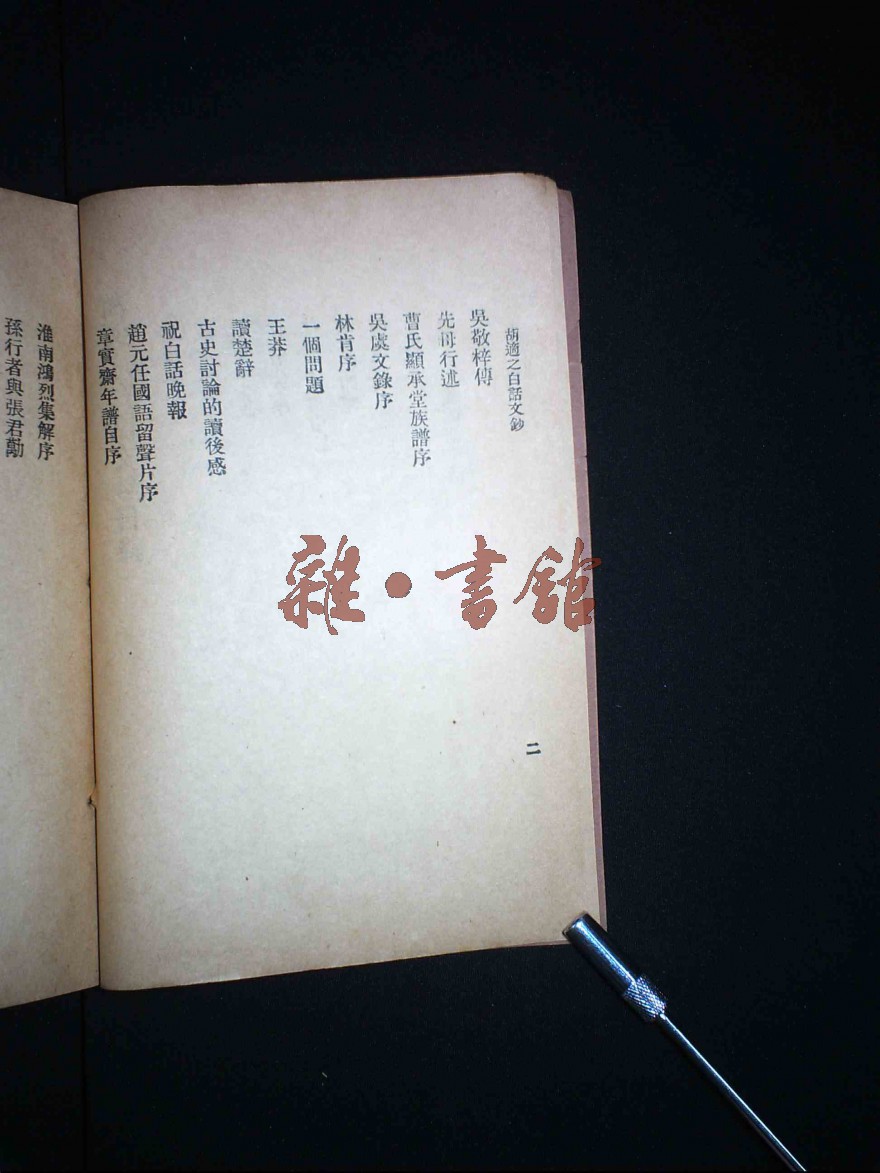 胡適之白話文鈔
吳敬梓傳
先母行述
曹氏顯承堂族譜序
吳虞文錄序
林肯序
一個問題
王莽
讀楚辭
古史討論的讀後感
祝白話晚報
趙元任國語留聲片序
章實齋年譜自序
二
淮南鴻烈集解序
孫行者與張君勱
雜·書館